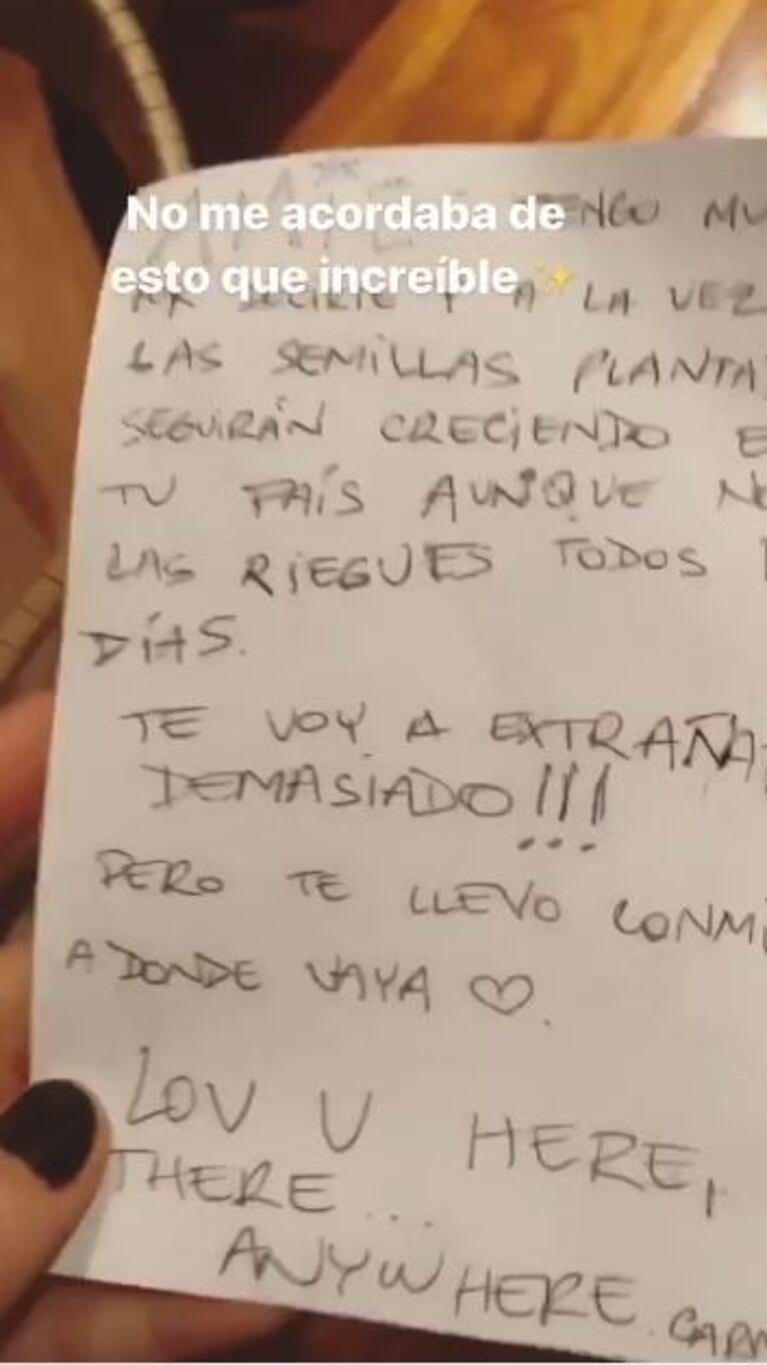 No me acordaba de
esto que increíble ✨
TENGO MU
DECIRTE Y A LA VEZ
LAS SEMILLAS PLANTA
SEGUIRÁN CRECIENDO E
TU PAÍS AUNQUE NO
LAS RIEGUES TODOS
DÍAS.
TE VOY A EXTRAÑA
DEMASIADO!!!
PERO TE LLEVO CONMI
A DONDE VAYA ♡.
LOV U HERE,
THERE...
ANYWHERE.